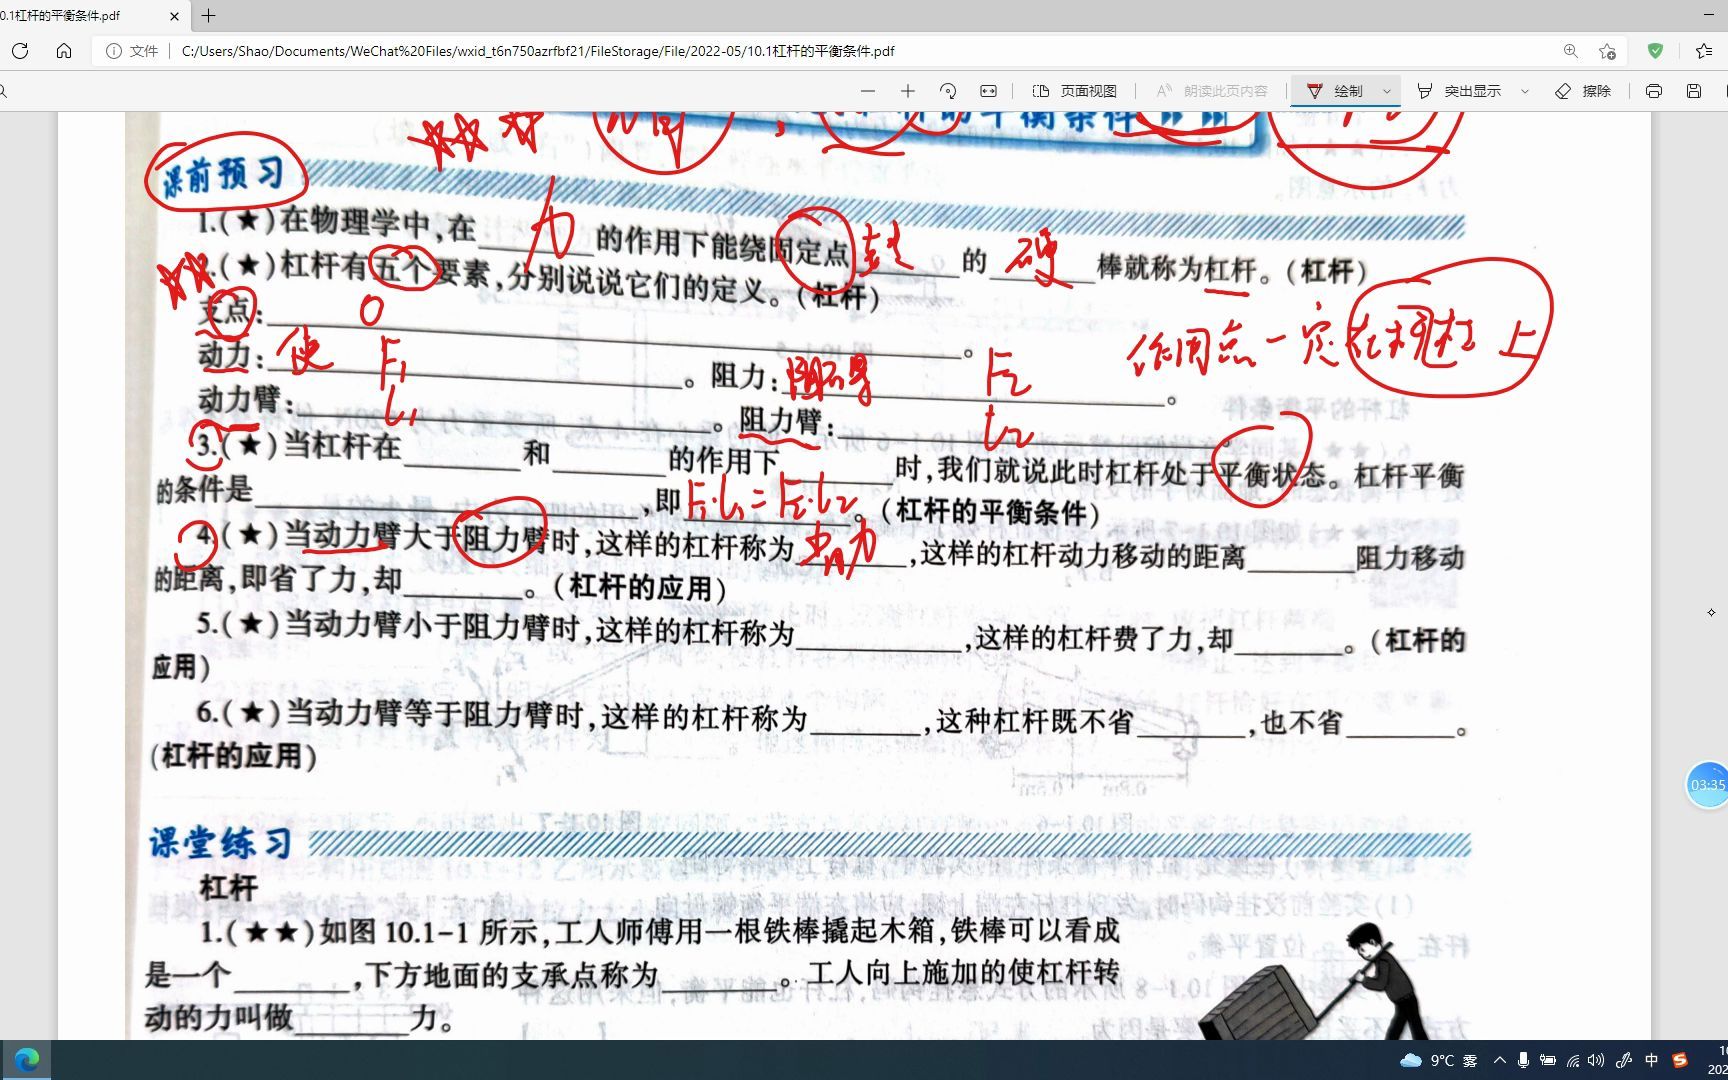 0.1杠杆的平衡条件.pdf
文件 C:/Users/Shao/Documents/WeChat%20Files/wxid_t6n750azrfbf21/FileStorage/File/2022-05/10.1杠杆的平衡条件.pdf
页面视图 朗读此页内容 绘制 突出显示 擦除
的平衡条件
课前预习
1.(★)在物理学中,在 力 的作用下能绕固定点 的 硬 棒就称为杠杆。(杠杆)
.(★)杠杆有五个要素,分别说说它们的定义。(杠杆)
支点: O 。
作用点一定在杠杆上
动力: 使 F1 。阻力: 阻碍 F2 。
动力臂: L1 。阻力臂: L2 。
3.(★)当杠杆在 和 的作用下 时,我们就说此时杠杆处于平衡状态。杠杆平衡
的条件是 ,即 F1·L1=F2·L2 。(杠杆的平衡条件)
4.(★)当动力臂大于阻力臂时,这样的杠杆称为 省力 ,这样的杠杆动力移动的距离 阻力移动
的距离,即省了力,却 。(杠杆的应用)
5.(★)当动力臂小于阻力臂时,这样的杠杆称为 ,这样的杠杆费了力,却 。(杠杆的
应用)
6.(★)当动力臂等于阻力臂时,这样的杠杆称为 ,这种杠杆既不省 ,也不省 。
(杠杆的应用)
03:35
课堂练习
杠杆
1.(★★)如图 10.1-1 所示,工人师傅用一根铁棒撬起木箱,铁棒可以看成
是一个 ,下方地面的支承点称为 。工人向上施加的使杠杆转
动的力叫做 力。
9°C 雾 中